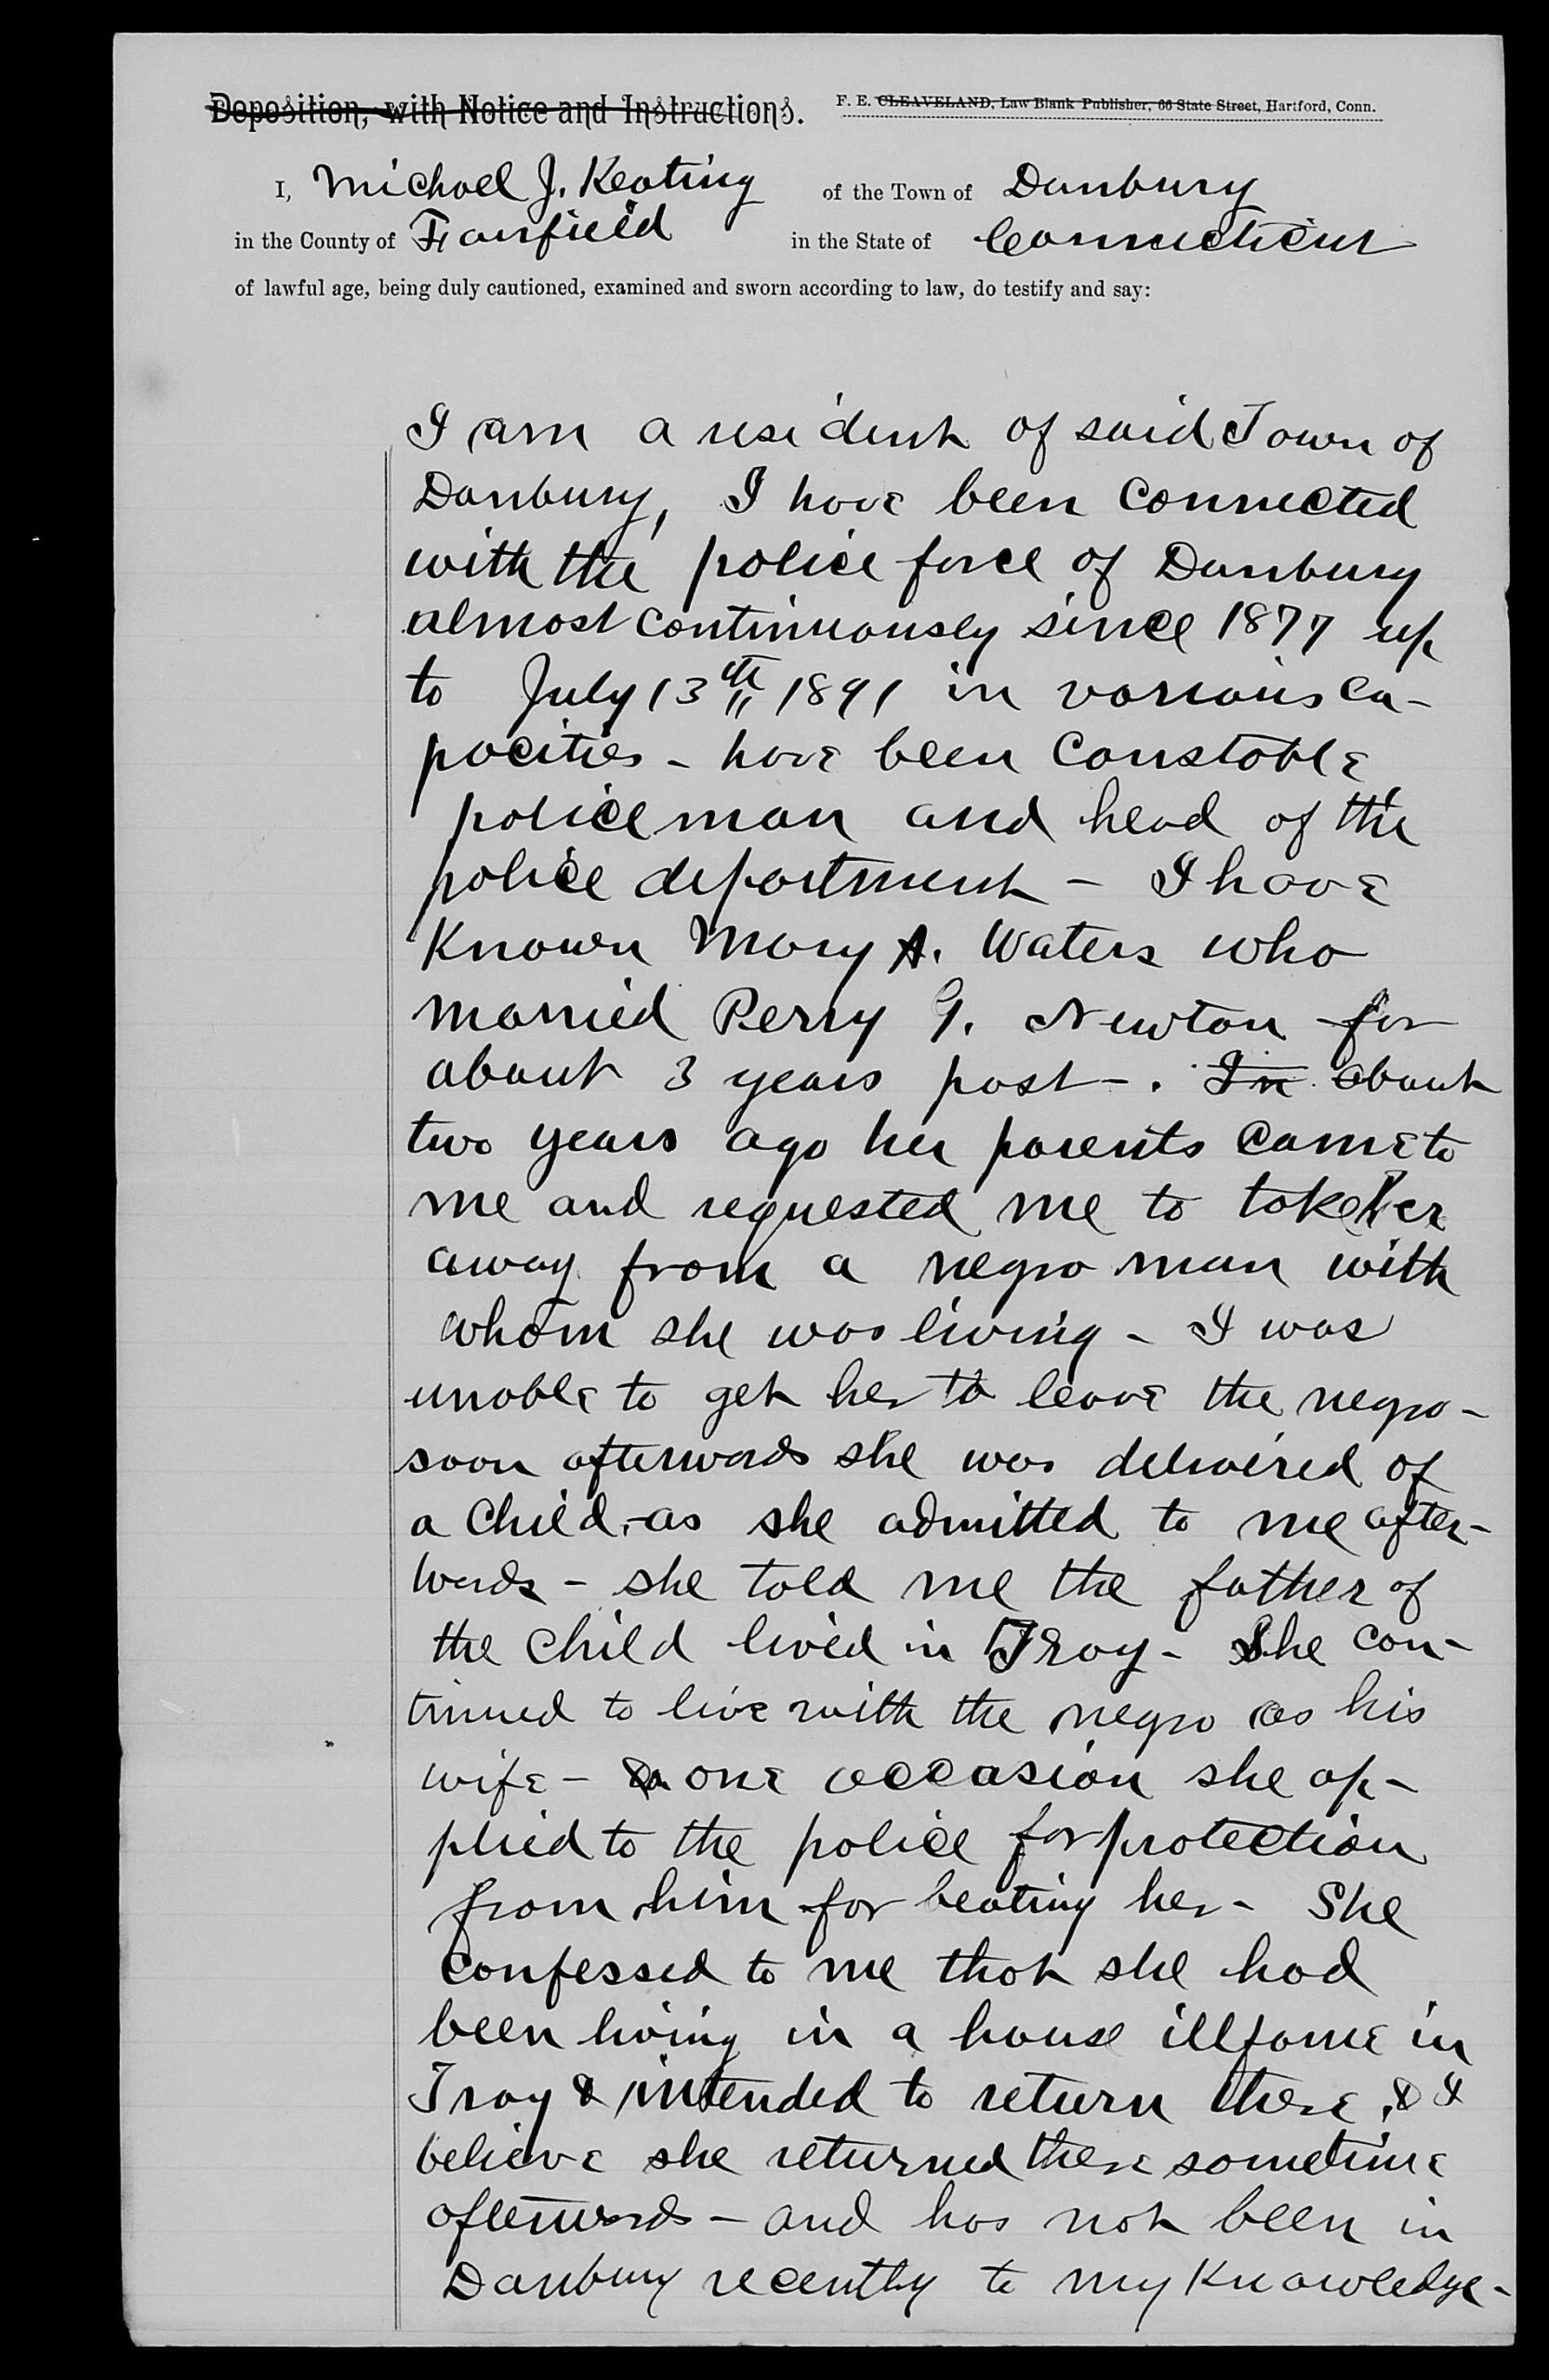 Deposition, with Notice and Instructions. F. E. CLEAVELAND, Law Blank Publisher, 66 State Street, Hartford, Conn.
I, Michael J. Keating of the Town of Danbury
in the County of Fairfield in the State of Connecticut
of lawful age, being duly cautioned, examined and sworn according to law, do testify and say:
I am a resident of said Town of
Danbury, I have been connected
with the police force of Danbury
almost continuously since 1877 up
to July 13th 1891 in various ca-
pacities - have been Constable
policeman and head of the
police department - I have
known Mary A. Waters who
married Perry G. Newton for
about 3 years past -. In about
two years ago her parents came to
me and requested me to take her
away from a negro man with
whom she was living - I was
unable to get her to leave the negro -
soon afterwards she was delivered of
a child, - as she admitted to me after-
wards - she told me the father of
the child lived in Troy - She con-
tinued to live with the negro as his
wife - On one occasion she ap-
plied to the police for protection
from him for beating her - She
confessed to me that she had
been living in a house illfame in
Troy & intended to return there, & I
believe she returned there sometime
afterwards - and has not been in
Danbury recently to my knowledge -